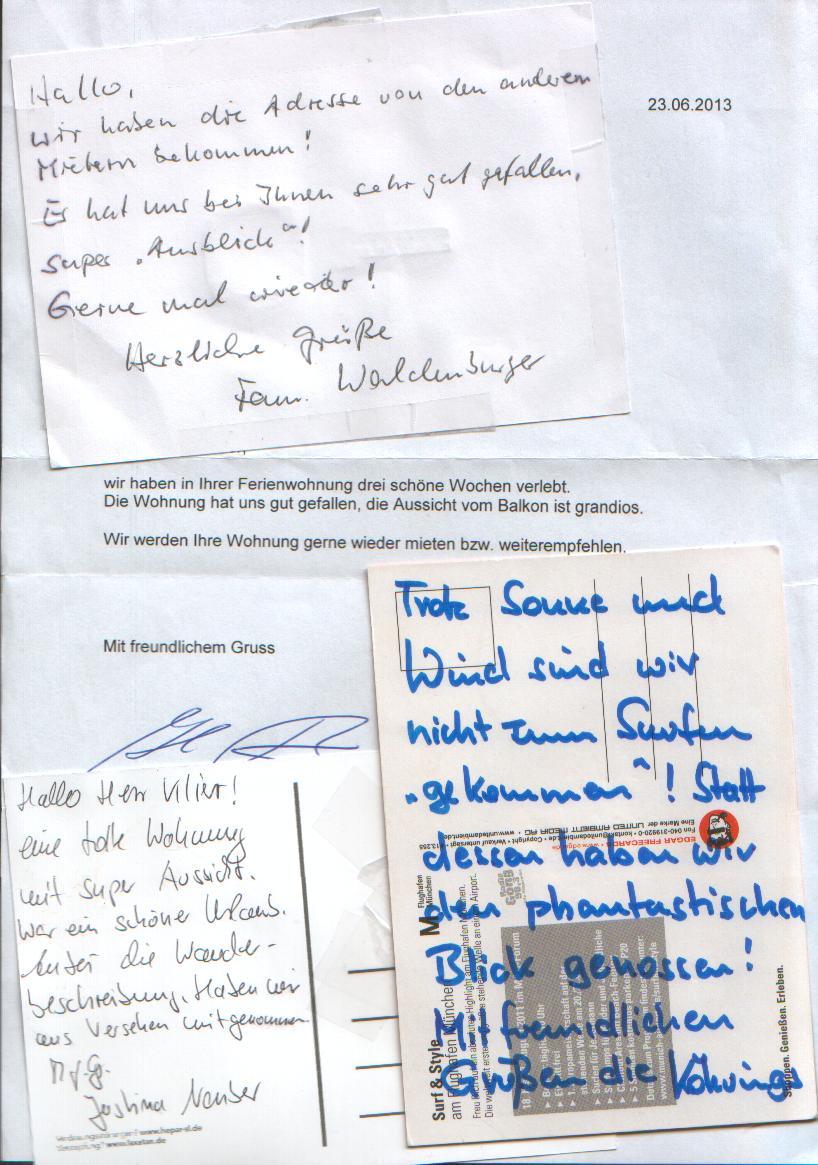 Hallo,
wir haben die Adresse von den anderen
Mietern bekommen!
Es hat uns bei Ihnen sehr gut gefallen,
super "Ausblick"!
Gerne mal wieder!
Herzliche Grüße
Fam. Waldenburger
23.06.2013
wir haben in Ihrer Ferienwohnung drei schöne Wochen verlebt.
Die Wohnung hat uns gut gefallen, die Aussicht vom Balkon ist grandios.
Wir werden Ihre Wohnung gerne wieder mieten bzw. weiterempfehlen.
Mit freundlichem Gruss
Hallo Herr
eine tolle Wohnung
mit super Aussicht.
War ein schöner Urlaub.
die Wander-
beschreibung. Haben wir
aus Versehen mitgenommen
MfG.
Trotz Sonne und
Wind sind wir
nicht zum Surfen
"gekommen"! Statt
dessen haben wir
den phantastischen
Blick genossen!
Mit freundlichen
Grüßen die
EDGAR FREECARDS
Eine Marke der UNITED AMBIENT MEDIA AG
M Flughafen
München
Surf & Style
am Flughafen München
Genießen. Erleben.